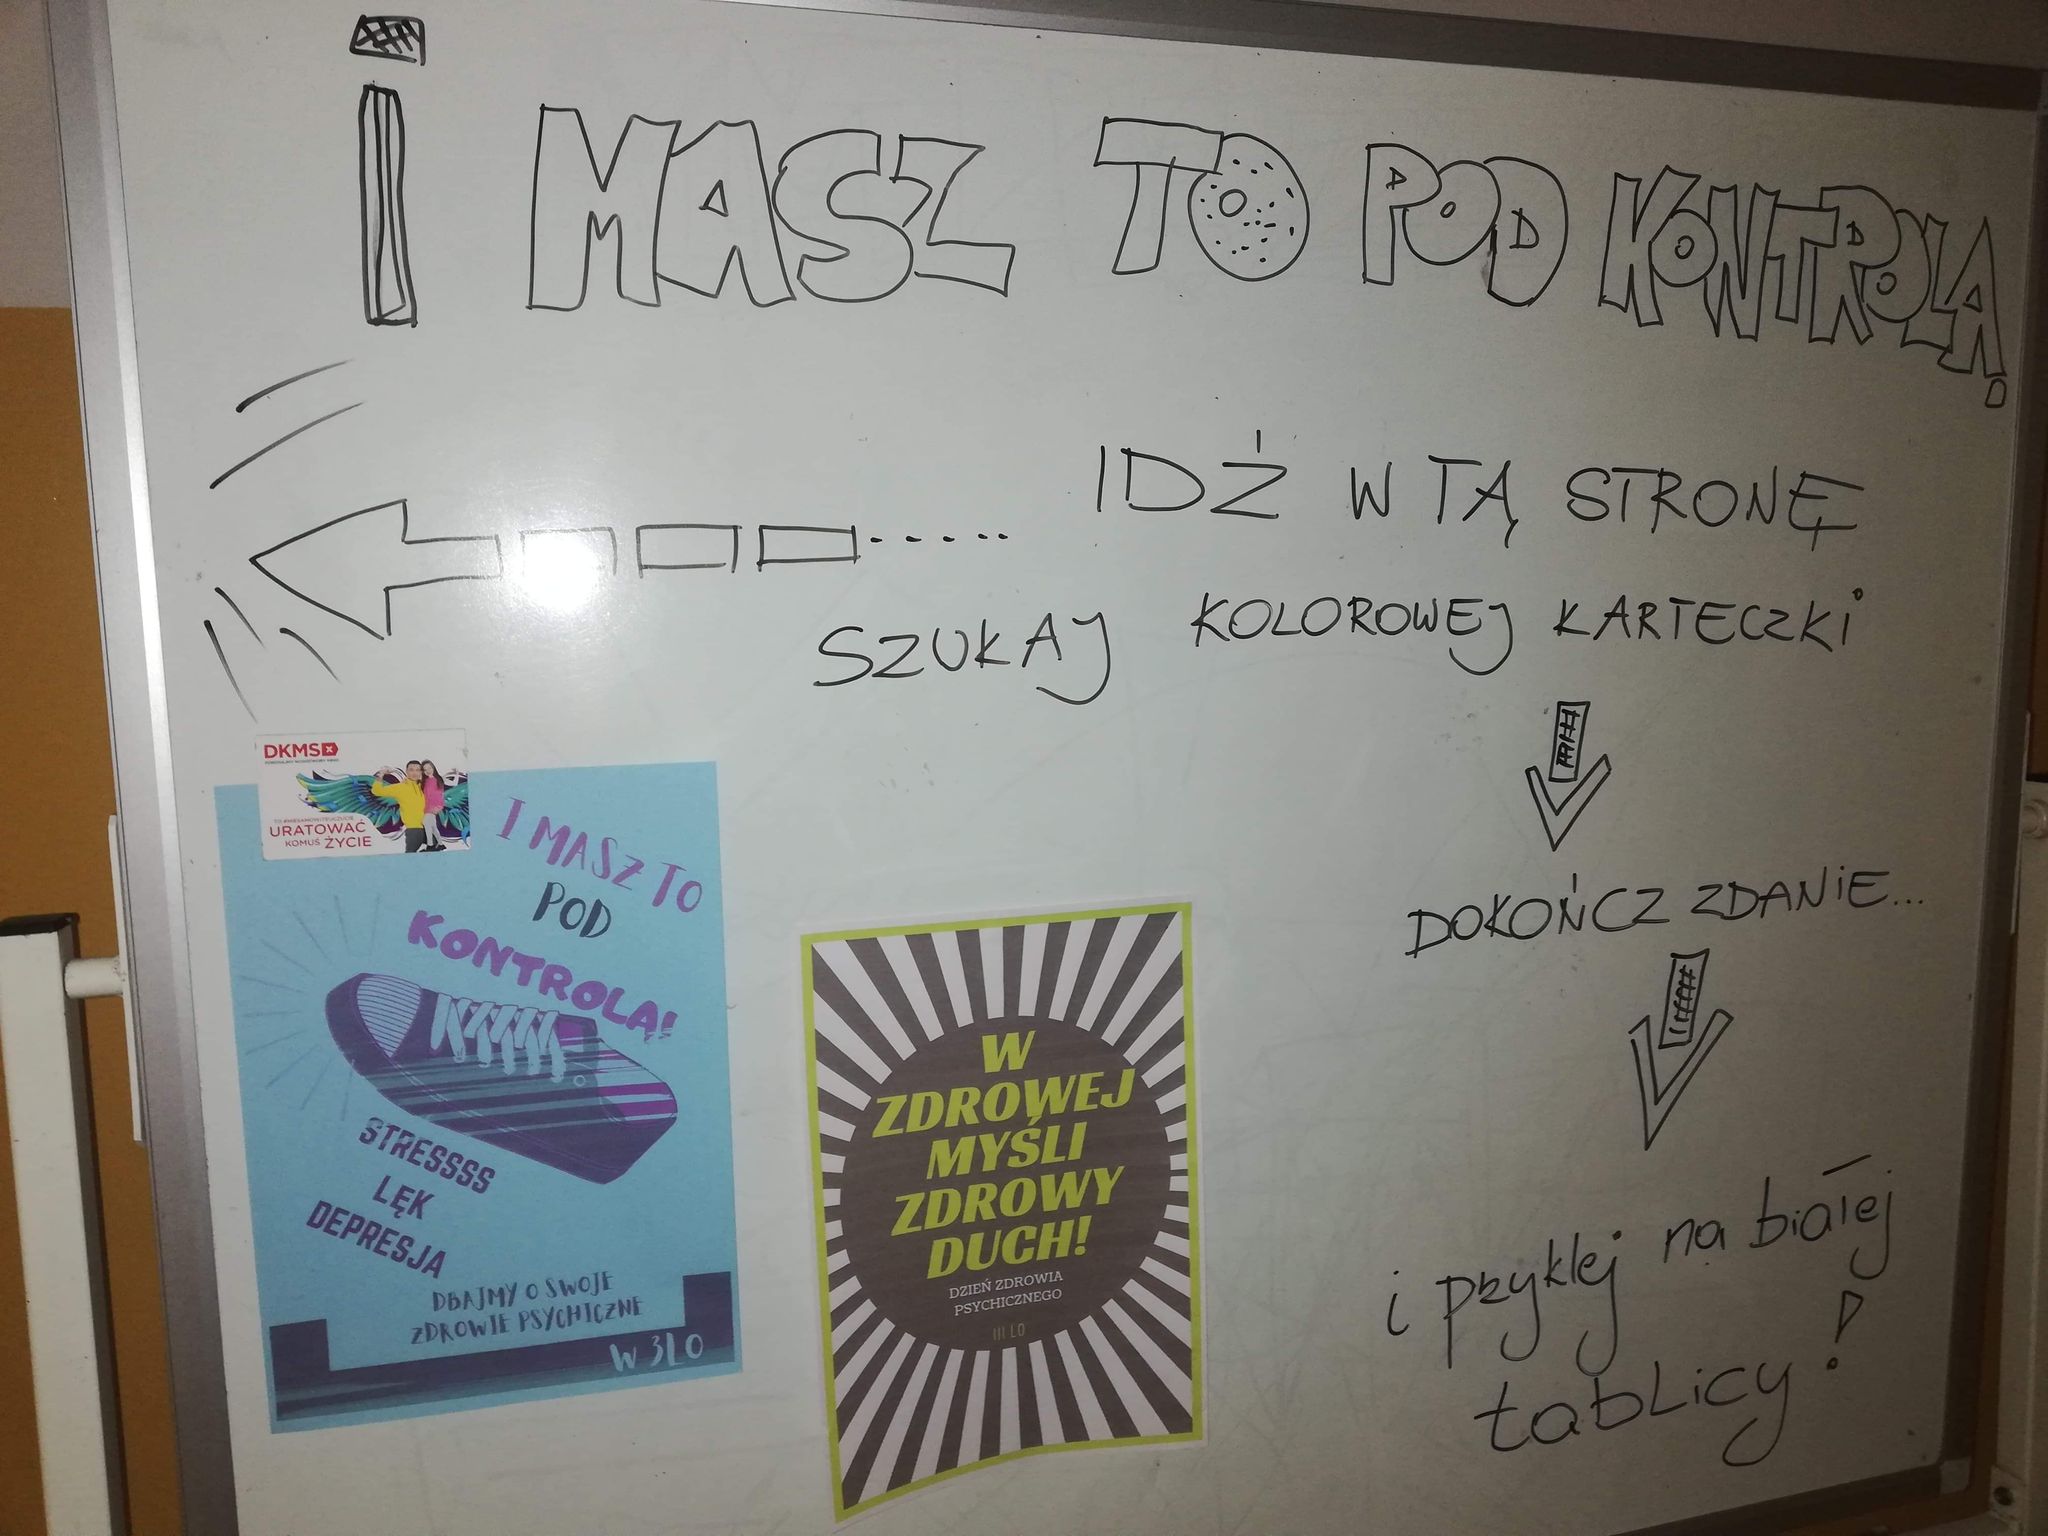 i MASZ TO POD KONTROLĄ
IDŹ W TĄ STRONĘ
SZUKAJ KOLOROWEJ KARTECZKI
DOKOŃCZ ZDANIE...
i przyklej na białej
tablicy!
DKMS
URATOWAĆ
KOMUŚ ŻYCIE
I MASZ TO
POD
KONTROLĄ!
STRESSSS
LĘK
DEPRESJA
DBAJMY O SWOJE
ZDROWIE PSYCHICZNE
W 3LO
W
ZDROWEJ
MYŚLI
ZDROWY
DUCH!
DZIEŃ ZDROWIA
PSYCHICZNEGO
III LO